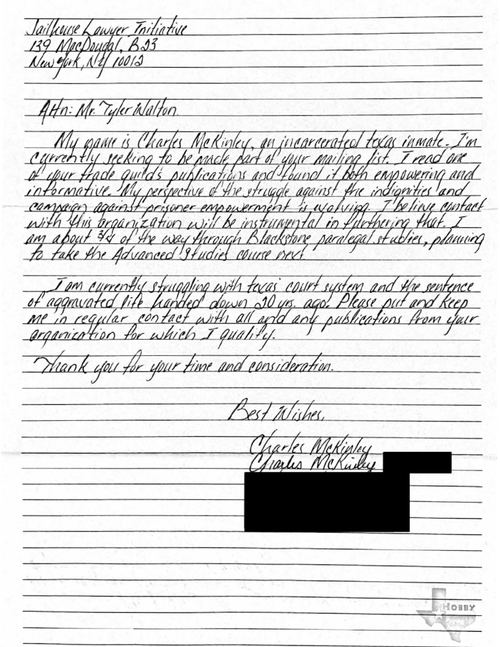 Jailhouse Lawyer Initiative
139 MacDougal, B23
New York, NY 10012
Attn: Mr. Tyler Walton
My name is Charles McKinley, an incarcerated texas inmate. I'm
currently seeking to be made part of your mailing list. I read one
of your trade guild's publications and found it both empowering and
informative. My perspective of the struggle against the indignities and
campaign against prisoner empowerment is evolving. I belive contact
with this organization will be instrumental in furthering that. I
am about 3/4 of the way through Blackstone paralegal studies, planning
to take the Advanced Studies course next.
I am currently struggling with texas' court system and the sentence
of aggravated life handed down 20 yrs. ago. Please put and keep
me in regular contact with all and any publications from your
organization for which I qualify.
Thank you for your time and consideration.
Best Wishes,
Charles McKinley
Charles McKinley
HOBBY